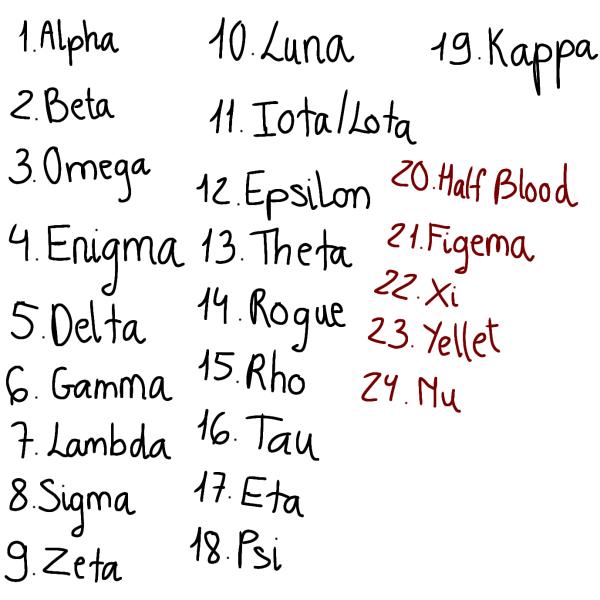 1.Alpha
2.Beta
3.Omega
4.Enigma
5.Delta
6.Gamma
7.Lambda
8.Sigma
9.Zeta
10.Luna
11.Iota/Lota
12.Epsilon
13.Theta
14.Rogue
15.Rho
16.Tau
17.Eta
18.Psi
19.Kappa
20.Half Blood
21.Figema
22.Xi
23.Yellet
24.Nu